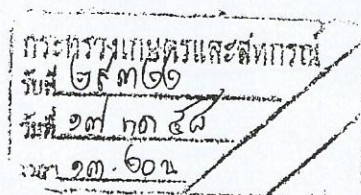 กระทรวงเกษตรและสหกรณ์
รับที่
วันที่ ๑๗ กค ๔๘
เวลา ๑๓.๒๐น